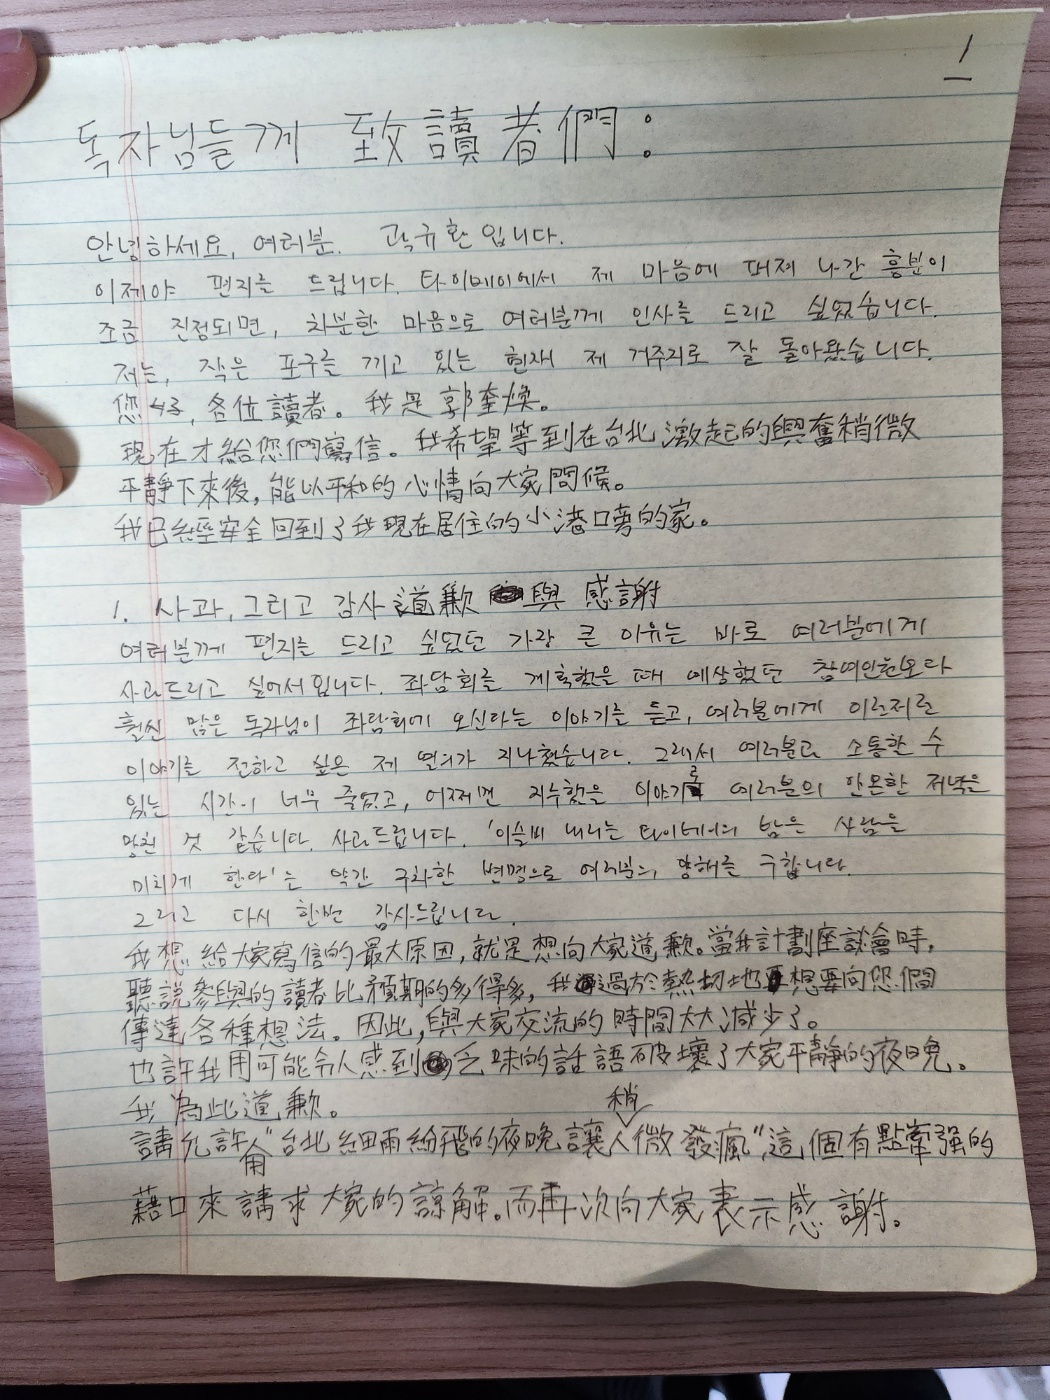 1
독자님들께 致讀者們：
안녕하세요, 여러분. 곽규환입니다.
이제야 편지를 드립니다. 타이베이에서 제 마음에 터져 나간 흥분이
조금 진정되면, 차분한 마음으로 여러분께 인사를 드리고 싶었습니다.
저는, 작은 포구를 끼고 있는 현재 제 거주지로 잘 돌아왔습니다.
您好, 各位讀者。我是郭奎煥。
現在才給您們寫信。我希望等到在台北激起的興奮稍微
平靜下來後，能以平和的心情向大家問候。
我已經安全回到了我現在居住的小港口旁的家。
1. 사과, 그리고 감사 道歉 與 感謝
여러분께 편지를 드리고 싶었던 가장 큰 이유는 바로 여러분에게
사과드리고 싶어서입니다. 좌담회를 계획했을 때 예상했던 참여인원보다
훨씬 많은 독자님이 좌담회에 오신다는 이야기를 듣고, 여러분에게 이런저런
이야기를 전하고 싶은 제 열의가 지나쳤습니다. 그래서 여러분과 소통할 수
있는 시간이 너무 줄었고, 어쩌면 지루했을 이야기로 여러분의 안온한 저녁을
망친 것 같습니다. 사과드립니다. '이슬비 내리는 타이베이의 밤은 사람을
미치게 한다'는 약간 구차한 변명으로 여러분의 양해를 구합니다.
그리고 다시 한번 감사드립니다.
我想給大家寫信的最大原因，就是想向大家道歉。當我計劃座談會時，
聽說參與的讀者比預期的多得多，我過於熱切地想要向您們
傳達各種想法。因此，與大家交流的時間大大減少了。
也許我用可能令人感到乏味的話語破壞了大家平靜的夜晚。
我為此道歉。
請允許用"台北細雨紛飛的夜晚讓人稍微發瘋"這個有點牽强的
藉口來請求大家的諒解。而再次向大家表示感謝。